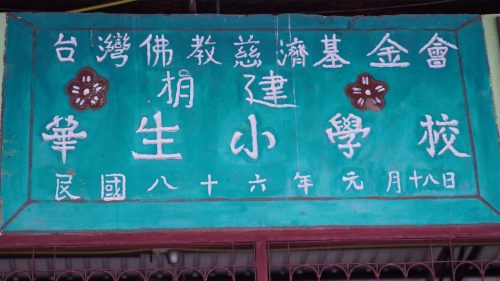 台灣佛教慈濟基金會
捐建
華生小學校
民國八十六年元月十八日